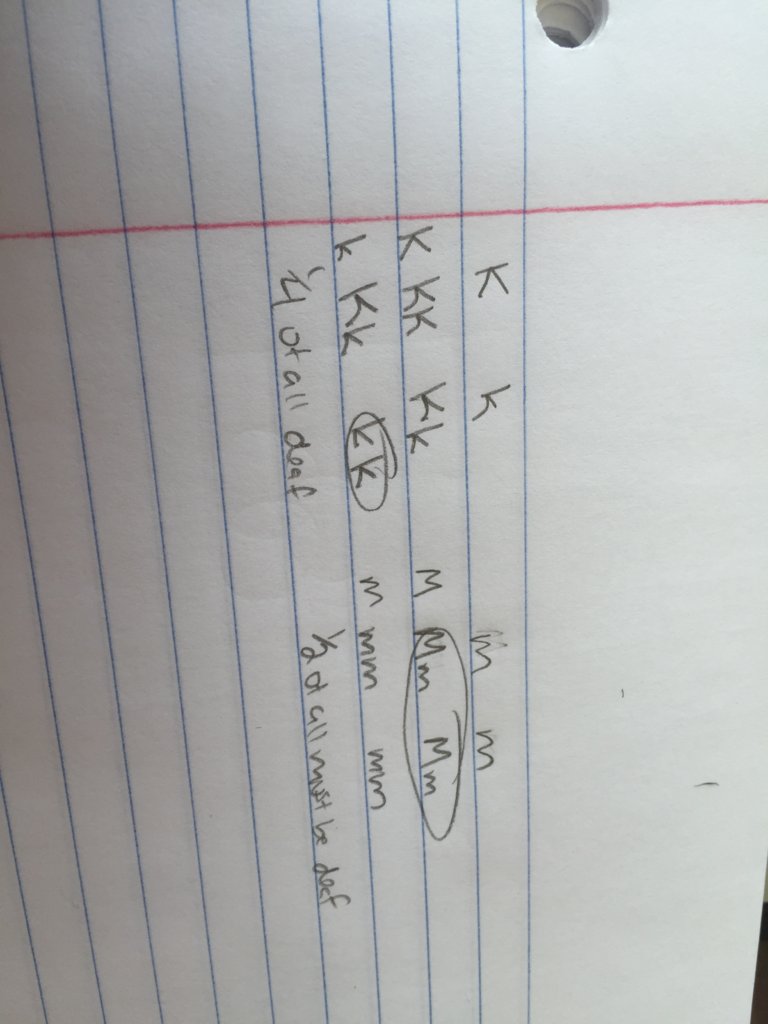 K k m m
K KK Kk M Mm Mm
k Kk kk m mm mm
1/4 of all deaf 1/2 of all must be deaf